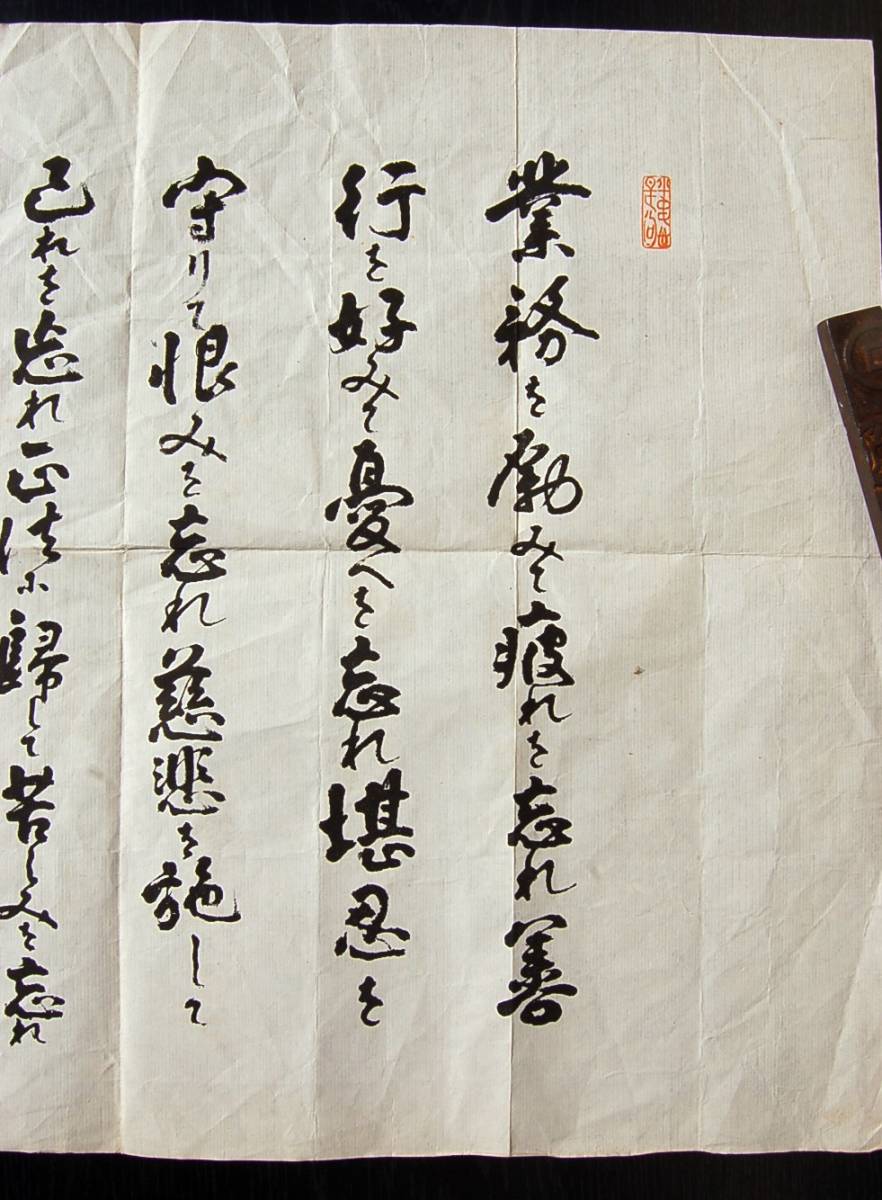 業務を励みて疲れを忘れ善
行を好みて憂へを忘れ堪忍を
守りて恨みを忘れ慈悲を施して
己れを忘れ正法に歸して苦しみを忘れ